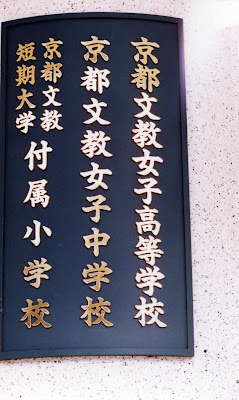 京都文教女子高等学校
京都文教女子中学校
京都文教
短期大学
付属小学校